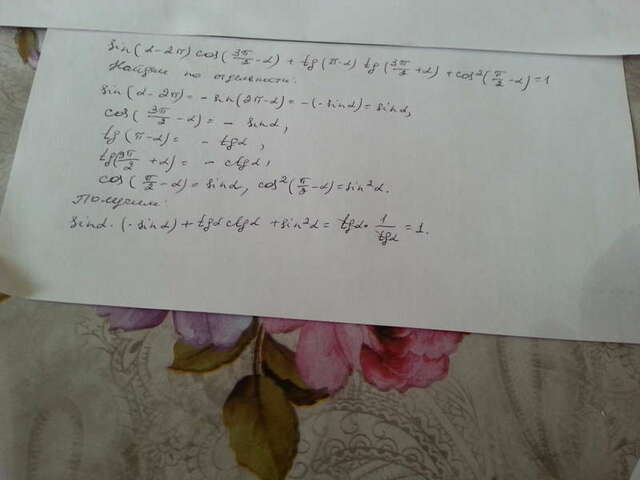 sin(α-2π) cos(3π/2-α) + tg(π-α) tg(3π/2+α) + cos²(π/2-α)=1
Найдем по отдельности:
sin(α-2π)= - sin(2π-α)= -(-sinα)= sinα,
cos(3π/2-α)= - sinα,
tg(π-α)= - tgα,
tg(3π/2+α)= - ctgα,
cos(π/2-α)= sinα, cos²(π/2-α)=sin²α.
Получим:
sinα·(-sinα)+tgα ctgα +sin²α= tgα· 1/tgα =1.